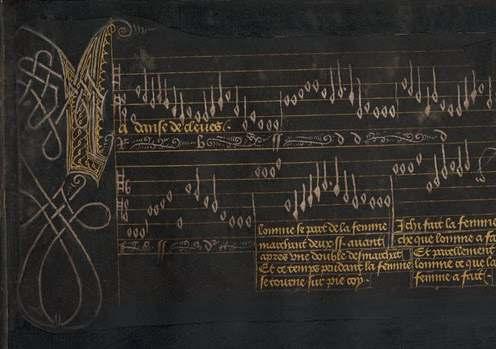 La danse de cleues.
lomme se part de la femme
marchant deux ss auant
apres vne double desmarchat
Et ce temps pendant la femme
se tourne sur pie coy.
Ichi fait la femme
che que lomme a fa
Et pareillement
lomme ce que la
femme a fait.